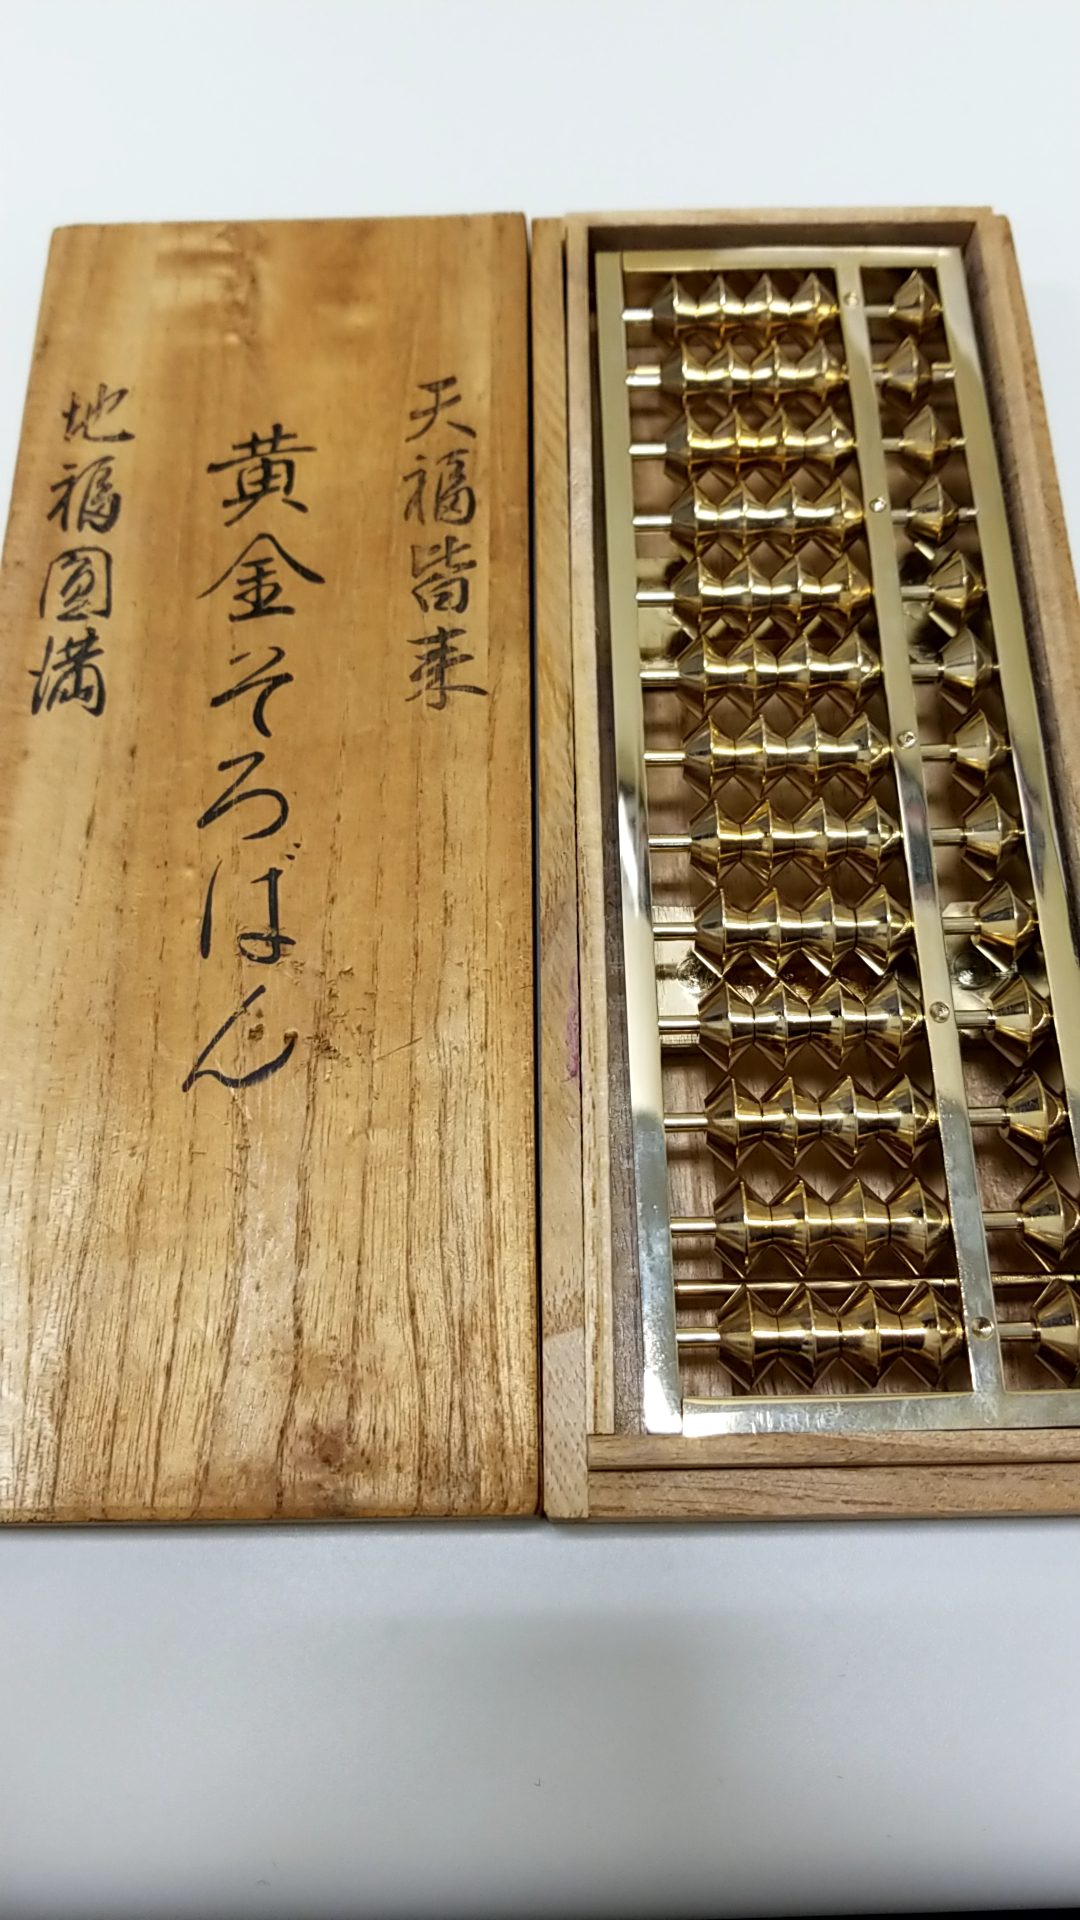 天福皆来
黄金そろばん
地福圓満